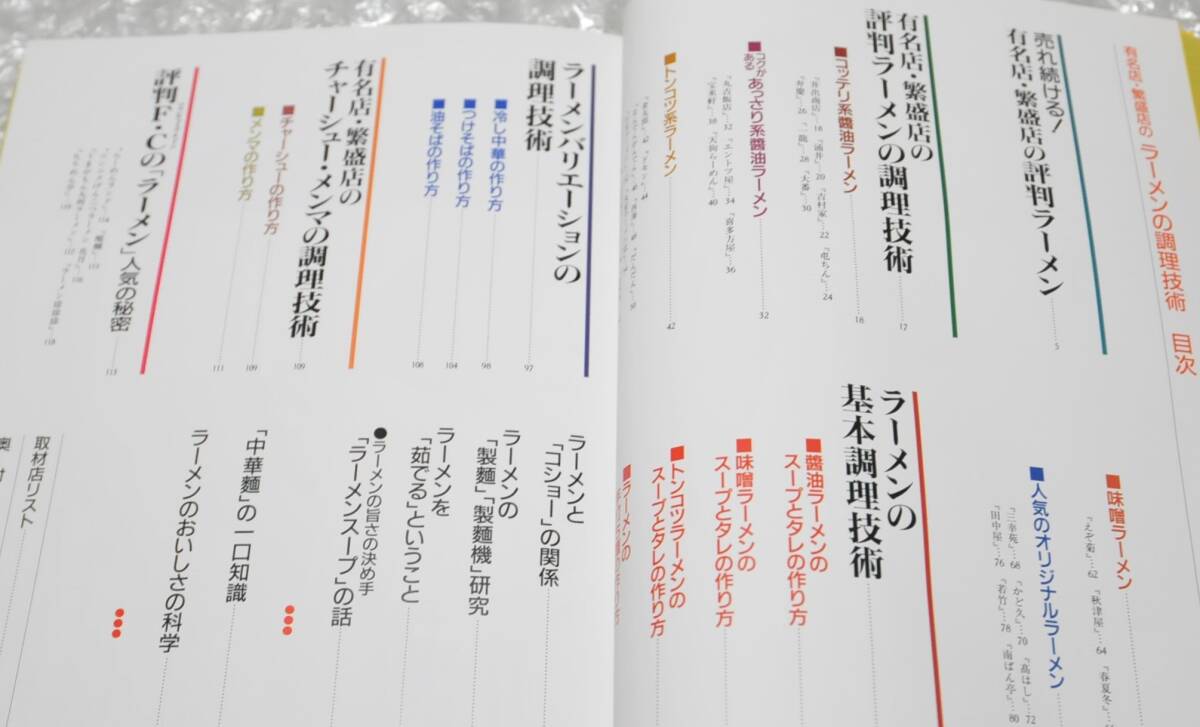 有名店・繁盛店の ラーメンの調理技術 目次
売れ続ける!
有名店・繁盛店の評判ラーメン……5
有名店・繁盛店の
評判ラーメンの調理技術……17
■コッテリ系醬油ラーメン……18
『井出商店』…18 『涌井』…20 『吉村家』…22 『屯ちん』…24
『弁慶』…26 『一龍』…28 『大番』…30
■コクがある あっさり系醬油ラーメン……32
『丸吉飯店』…32 『エントツ屋』…34 『喜多方屋』…36
『宝来軒』…38 『天狗らーめん』…40
■トンコツ系ラーメン……42
■味噌ラーメン
『えぞ菊』…62 『秋津屋』…64 『春夏冬』
■人気のオリジナルラーメン
『三幸苑』…68 『かと久』…70 『高はし』…72
『田中屋』…76 『若竹』…78 『南ばん亭』…80
ラーメンの
基本調理技術
■醬油ラーメンの
スープとタレの作り方
■味噌ラーメンの
スープとタレの作り方
■トンコツラーメンの
スープとタレの作り方
■ラーメンの
ラーメンバリエーションの
調理技術……97
■冷し中華の作り方……98
■つけそばの作り方……104
■油そばの作り方……106
有名店・繁盛店の
チャーシュー・メンマの調理技術……109
■チャーシューの作り方……109
■メンマの作り方……111
評判F・Cの「ラーメン」人気の秘密……113
ラーメンと
「コショー」の関係
ラーメンの
「製麺」「製麺機」研究
ラーメンを
「茹でる」ということ
●ラーメンの旨さの決め手
「ラーメンスープ」の話
「中華麺」の一口知識
ラーメンのおいしさの科学
取材店リスト
奥付